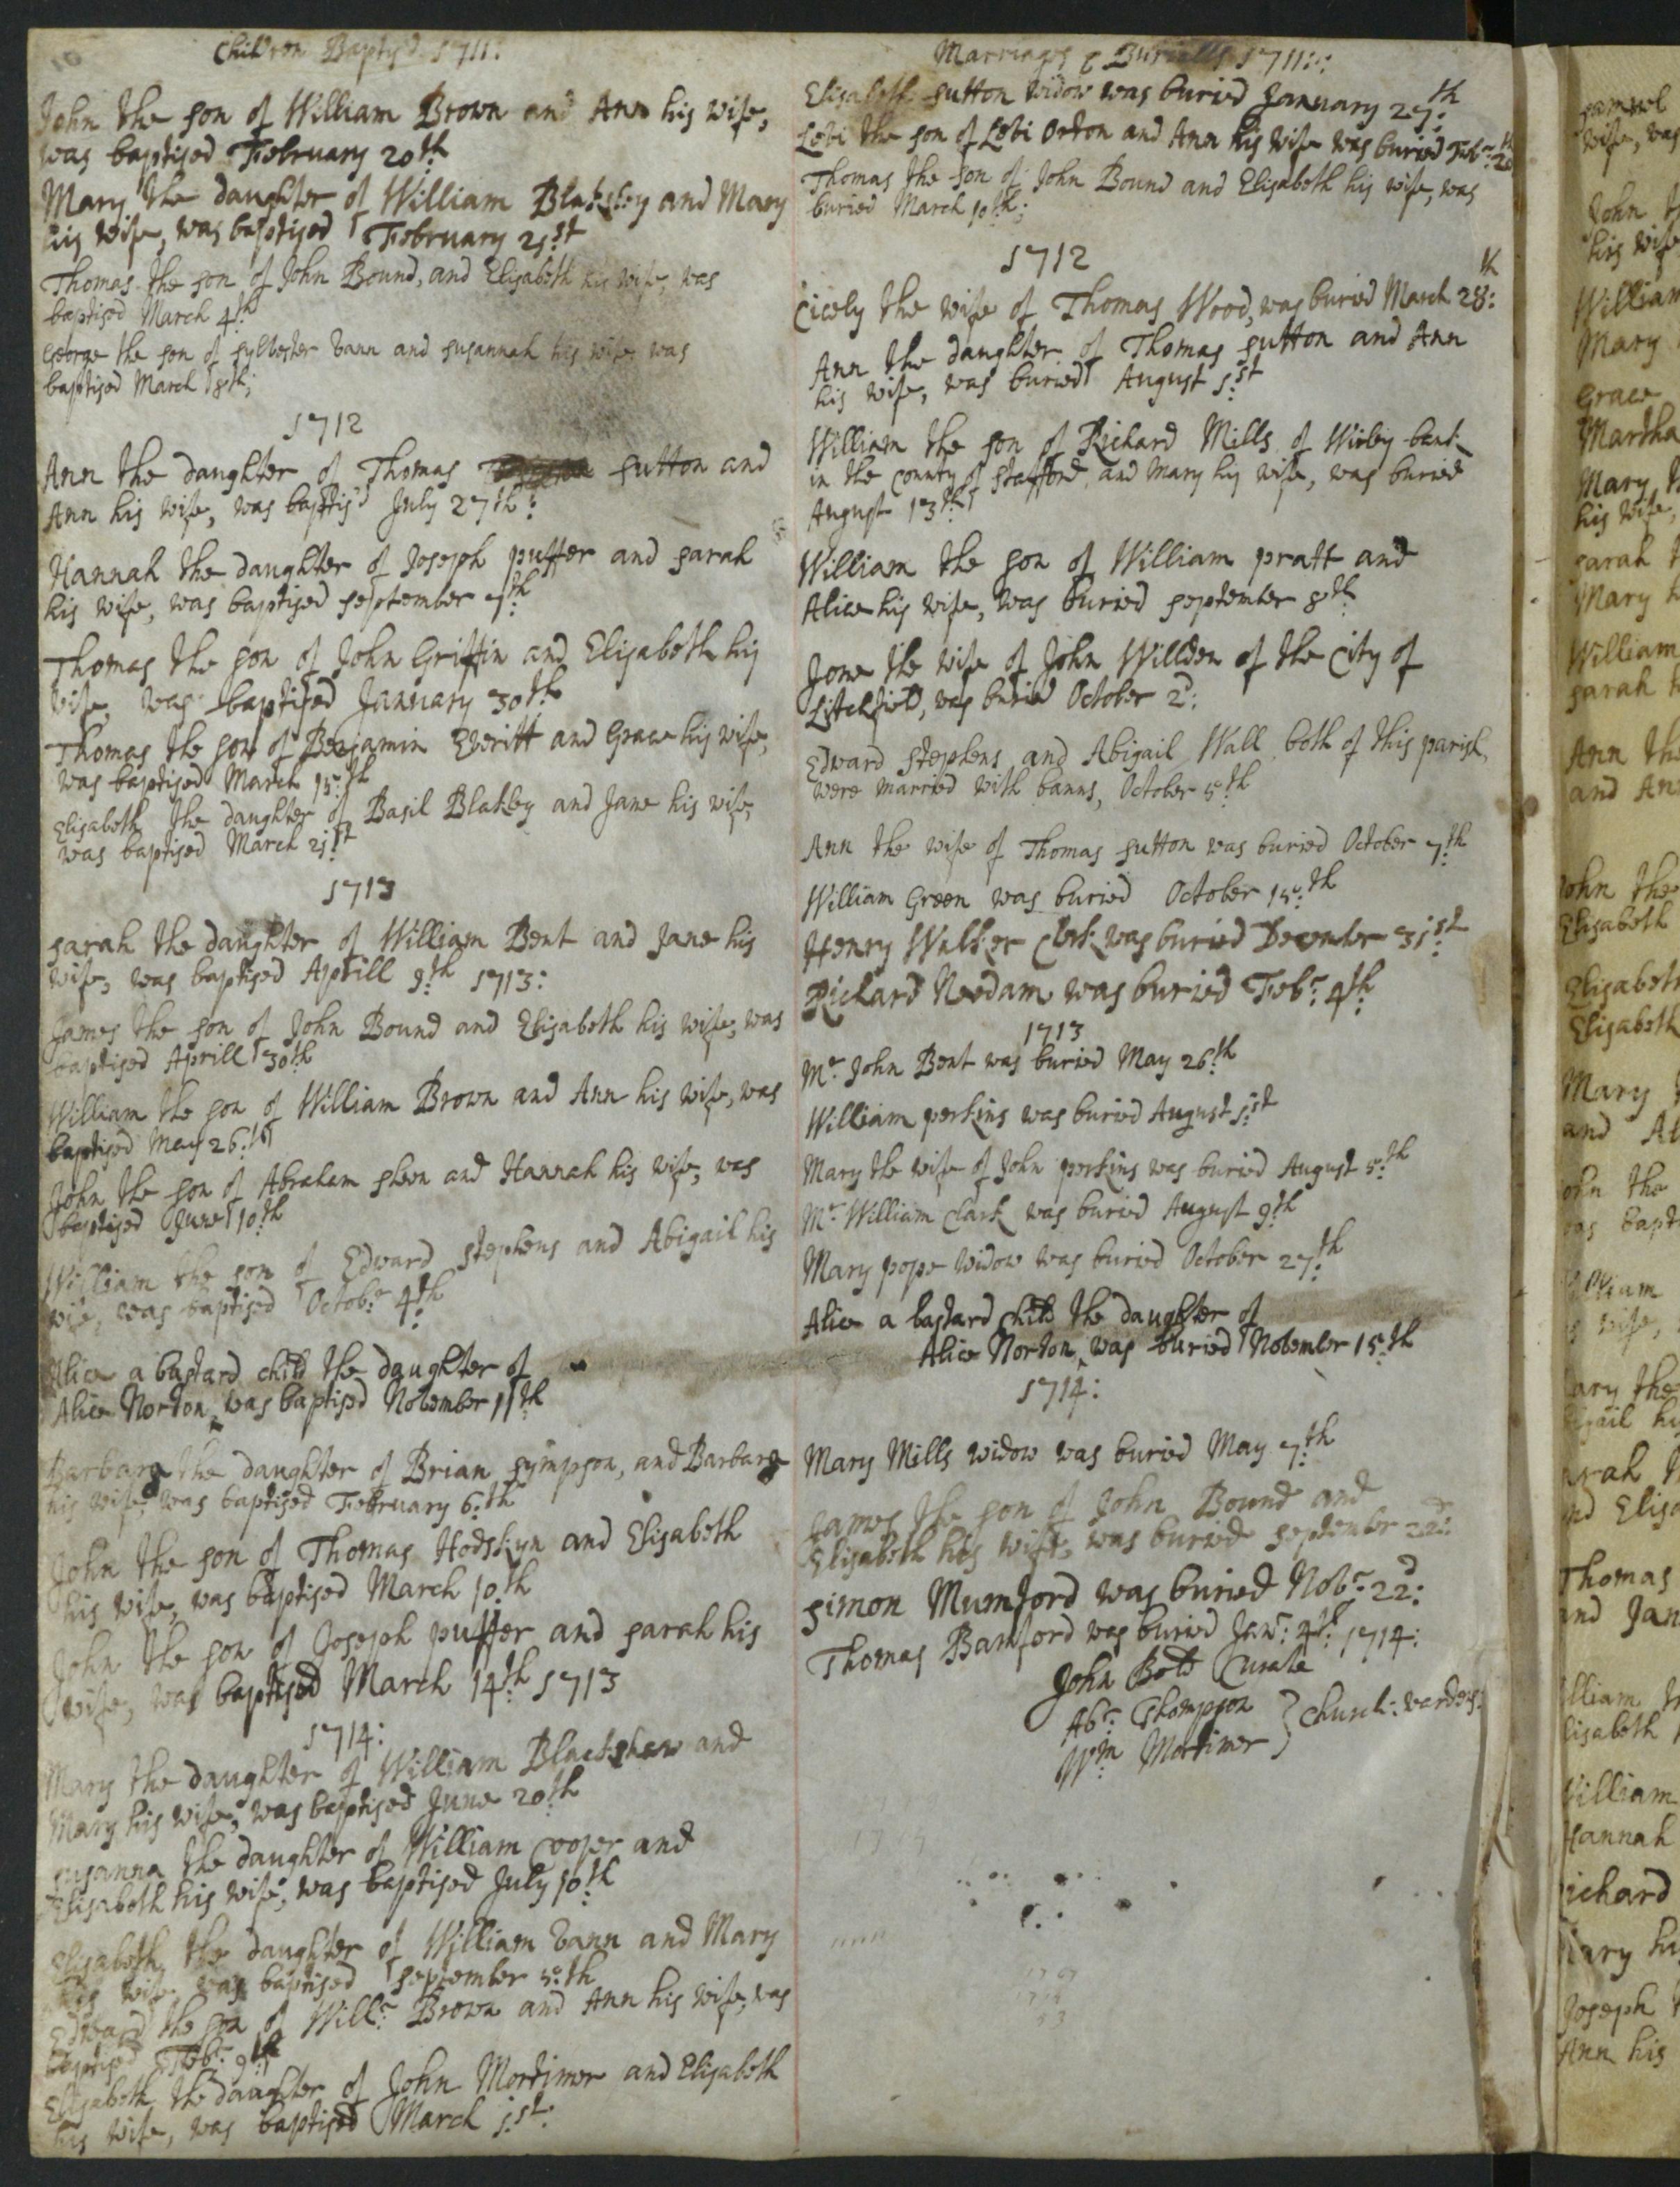 Children Baptis'd 1711:
John the son of William Brown and Ann his wife,
was baptised February 20th
Mary the daughter of William Blaksley and Mary
his wife, was baptised February 21st
Thomas the son of John Bound, and Elisabeth his wife, was
baptised March 4th
George the son of Sylvester Vann and Susannah his wife was
baptised March 18th;
1712
Ann the daughter of Thomas Sutton and
Ann his wife, was baptis'd July 27th:
Hannah the daughter of Joseph Puffer and Sarah
his wife, was baptised September 7th
Thomas the son of John Griffin and Elisabeth his
wife, was baptised January 30th
Thomas the son of Benjamin Everitt and Grace his wife,
was baptised March 15th
Elisabeth the daughter of Basil Blakley and Jane his wife,
was baptised March 21st
1713
Sarah the daughter of William Bent and Jane his
wife, was baptised Aprill 9th 1713:
James the son of John Bound and Elisabeth his wife, was
baptised Aprill 30th
William the son of William Brown and Ann his wife, was
baptised May 26th
John the son of Abraham Sheen and Hannah his wife, was
baptised June 10th
William the son of Edward Stephens and Abigail his
wife, was baptised Octobr 4th
Alice a bastard child the daughter of
Alice Norton, was baptised November 11th
Barbara the daughter of Brian Sympson, and Barbara
his wife, was baptised February 6th
John the son of Thomas Hodskyn and Elisabeth
his wife, was baptised March 10th
John the son of Joseph Puffer and Sarah his
wife, was baptised March 14th 1713
1714:
Mary the daughter of William Blackshaw and
Mary his wife, was baptised June 20th
Susanna the daughter of William Cooper and
Elisabeth his wife, was baptised July 10th
Elisabeth the daughter of William Vann and Mary
his wife was baptised September 5th
Edward the son of Willm Brown and Ann his wife, was
baptised Febr: 9th
Elisabeth the daughter of John Mortimer and Elisabeth
his wife, was baptised March 1st:
Marriages & Burialls 1711::
Elisabeth Sutton widow was buried January 27th:
Levi the son of Levi Orton and Ann his wife was buried Febr:
Thomas the son of John Bound and Elisabeth his wife, was
buried March 10th;
1712
Cicely the wife of Thomas Wood, was buried March 28th:
Ann the daughter of Thomas Sutton and Ann
his wife, was buried August 1st
William the son of Richard Mills of Wirley-bank
in the County of Stafford, and Mary his wife, was buried
August 13th
William the son of William Pratt and
Alice his wife, was buried September 8th
Jone the wife of John Willden of the City of
Litchfield, was buried October 2d:
Edward Stephens and Abigail Wall both of this parish,
were married with banns, October 5th
Ann the wife of Thomas Sutton was buried October 7th
William Green was buried October 15th
Henry Walker Clerk was buried December 31st
Richard Needam was buried Febr: 4th
1713
Mr John Bent was buried May 26th
William Perkins was buried August 1st
Mary the wife of John Perkins was buried August 5th
Mr William Clark was buried August 9th
Mary Pope widow was buried October 27th
Alice a bastard child the daughter of
Alice Norton, was buried November 15th
1714:
Mary Mills widow was buried May 7th
James the son of John Bound and
Elisabeth his wife, was buried September 22d:
Simon Mumford was buried Novr 22d:
Thomas Bamford was buried Janr: 4th 1714:
John Bold Curate
Abr: Thompson
Wm Mortimer } Church:wardens:
Samuel
wife, was
John
his wife
William
Mary
Grace
Martha
Mary
his wife
Sarah
Mary
William
Sarah
Ann the
and Ann
John the
Elisabeth
Elisabeth
Elisabeth
Mary
and
John the
was bapt
William
wife,
Mary the
Abigail his
Sarah
and Elisa
Thomas
and Jan
William
Elisabeth
William
Hannah
Richard
Mary his
Joseph
Ann his